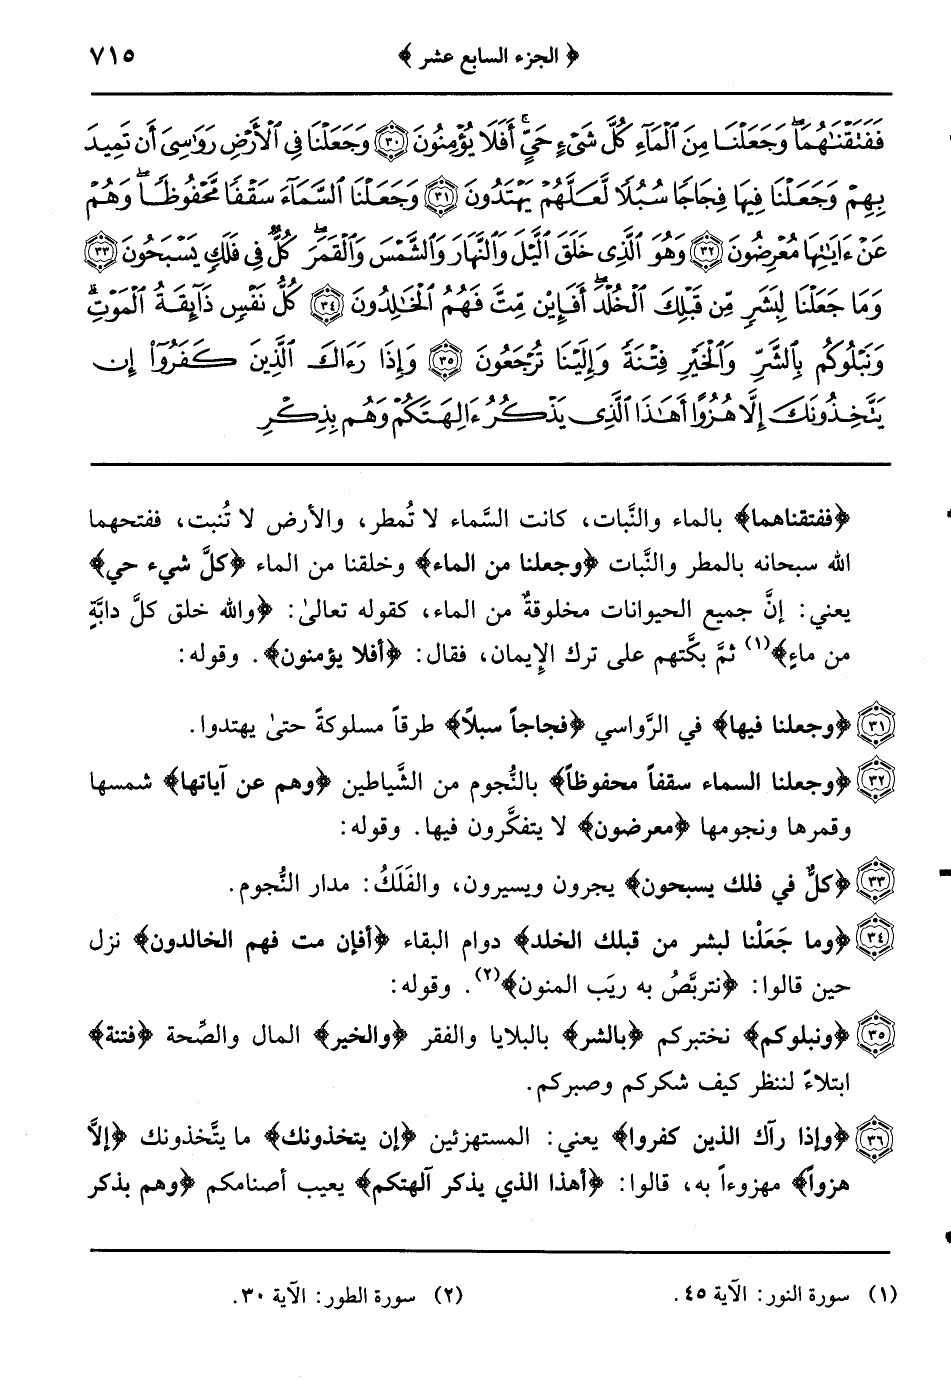 ﴿ الجزء السابع عشر ﴾ ٧١٥
فَفَتَقْنَٰهُمَا ۖ وَجَعَلْنَا مِنَ ٱلْمَآءِ كُلَّ شَىْءٍ حَىٍّ ۖ أَفَلَا يُؤْمِنُونَ ﴿٣٠﴾ وَجَعَلْنَا فِى ٱلْأَرْضِ رَوَٰسِىَ أَن تَمِيدَ
بِهِمْ وَجَعَلْنَا فِيهَا فِجَاجًا سُبُلًا لَّعَلَّهُمْ يَهْتَدُونَ ﴿٣١﴾ وَجَعَلْنَا ٱلسَّمَآءَ سَقْفًا مَّحْفُوظًا ۖ وَهُمْ
عَنْ ءَايَٰتِهَا مُعْرِضُونَ ﴿٣٢﴾ وَهُوَ ٱلَّذِى خَلَقَ ٱلَّيْلَ وَٱلنَّهَارَ وَٱلشَّمْسَ وَٱلْقَمَرَ ۖ كُلٌّ فِى فَلَكٍ يَسْبَحُونَ ﴿٣٣﴾
وَمَا جَعَلْنَا لِبَشَرٍ مِّن قَبْلِكَ ٱلْخُلْدَ ۖ أَفَإِي۟ن مِّتَّ فَهُمُ ٱلْخَٰلِدُونَ ﴿٣٤﴾ كُلُّ نَفْسٍ ذَآئِقَةُ ٱلْمَوْتِ ۗ
وَنَبْلُوكُم بِٱلشَّرِّ وَٱلْخَيْرِ فِتْنَةً ۖ وَإِلَيْنَا تُرْجَعُونَ ﴿٣٥﴾ وَإِذَا رَءَاكَ ٱلَّذِينَ كَفَرُوٓا۟ إِن
يَتَّخِذُونَكَ إِلَّا هُزُوًا أَهَٰذَا ٱلَّذِى يَذْكُرُ ءَالِهَتَكُمْ وَهُم بِذِكْرِ
﴿ففتقناهما﴾ بالماء والنَّبات، كانت السَّماء لا تُمطر، والأرض لا تُنبت، ففتحهما
الله سبحانه بالمطر والنَّبات ﴿وجعلنا من الماء﴾ وخلقنا من الماء ﴿كلَّ شيء حي﴾
يعني: إنَّ جميع الحيوانات مخلوقةٌ من الماء، كقوله تعالىٰ: ﴿والله خلق كلَّ دابَّةٍ
من ماءٍ﴾(١) ثمَّ بكَّتهم على ترك الإِيمان، فقال: ﴿أفلا يؤمنون﴾. وقوله:
﴿٣١﴾ ﴿وجعلنا فيها﴾ في الرَّواسي ﴿فجاجاً سبلاً﴾ طرقاً مسلوكةً حتىٰ يهتدوا.
﴿٣٢﴾ ﴿وجعلنا السماء سقفاً محفوظاً﴾ بالنُّجوم من الشَّياطين ﴿وهم عن آياتها﴾ شمسها
وقمرها ونجومها ﴿معرضون﴾ لا يتفكَّرون فيها. وقوله:
﴿٣٣﴾ ﴿كلٌّ في فلك يسبحون﴾ يجرون ويسيرون، والفَلَكُ: مدار النُّجوم.
﴿٣٤﴾ ﴿وما جَعَلْنا لبشر من قبلك الخلد﴾ دوام البقاء ﴿أفإن مت فهم الخالدون﴾ نزل
حين قالوا: ﴿نتربَّصُ به ريَب المنون﴾(٢). وقوله:
﴿٣٥﴾ ﴿ونبلوكم﴾ نختبركم ﴿بالشر﴾ بالبلايا والفقر ﴿والخير﴾ المال والصِّحة ﴿فتنة﴾
ابتلاءً لننظر كيف شكركم وصبركم.
﴿٣٦﴾ ﴿وإذا رآك الذين كفروا﴾ يعني: المستهزئين ﴿إن يتخذونك﴾ ما يتَّخذونك ﴿إلاَّ
هزواً﴾ مهزوءاً به، قالوا: ﴿أهذا الذي يذكر آلهتكم﴾ يعيب أصنامكم ﴿وهم بذكر
(١) سورة النور: الآية ٤٥.
(٢) سورة الطور: الآية ٣٠.